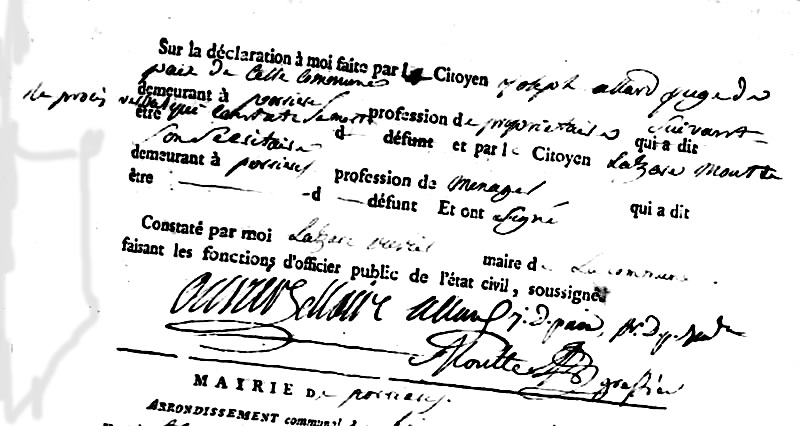 Sur la déclaration à moi faite par le Citoyen Joseph allard juge de
paix de cette commune
demeurant à porrieres profession de propriétaire suivant
le procès verbal qui constate
être d défunt et par le Citoyen Lazare Moutte qui a dit
son secretaire
demeurant à porrieres profession de menager
être d défunt Et ont signé qui a dit
Constaté par moi Lazare maire de La commune
faisant les fonctions d'officier public de l'état civil, soussigné
maire allard j. d. paix,
Moutte greffier
MAIRIE DE porrieres
ARRONDISSEMENT communal d